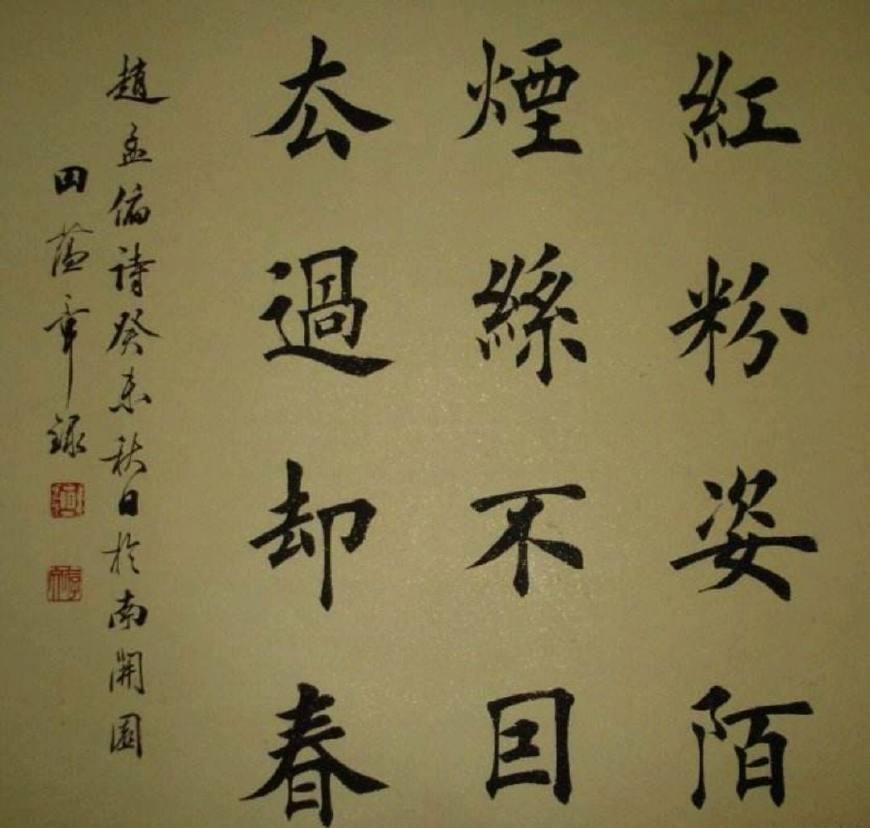 紅粉姿陌
煙絲不囙
厺過却春
趙孟詩癸未秋日於南開園
田蘊章錄